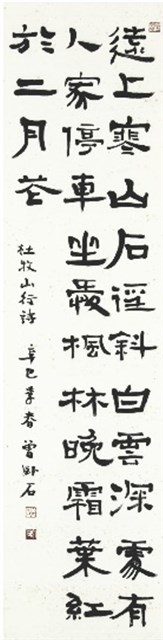 遠上寒山石徑斜白雲深處有
人家停車坐愛楓林晚霜葉紅
於二月花
杜牧山行詩 辛巳季春 曾卧石